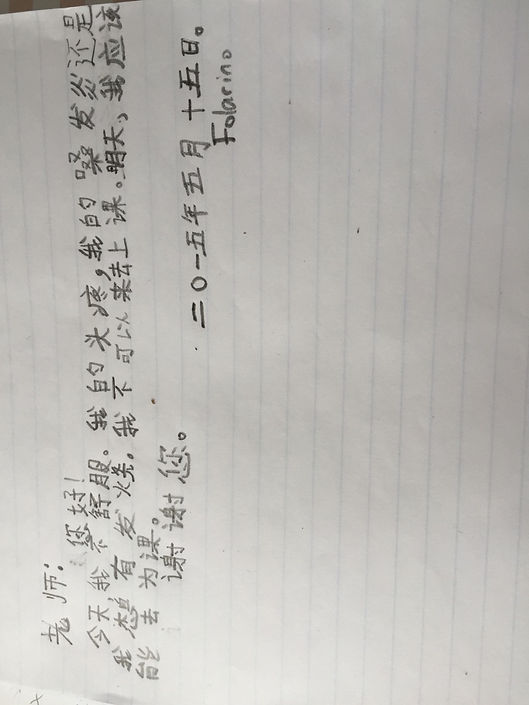 老师：
您好！
今天，我不舒服。我的头疼，我的嗓发炎还是
我想有发烧。我不可以来去上课。明天，我应该
能去为课。
谢谢您。
二〇一五年五月十五日。
Folarino